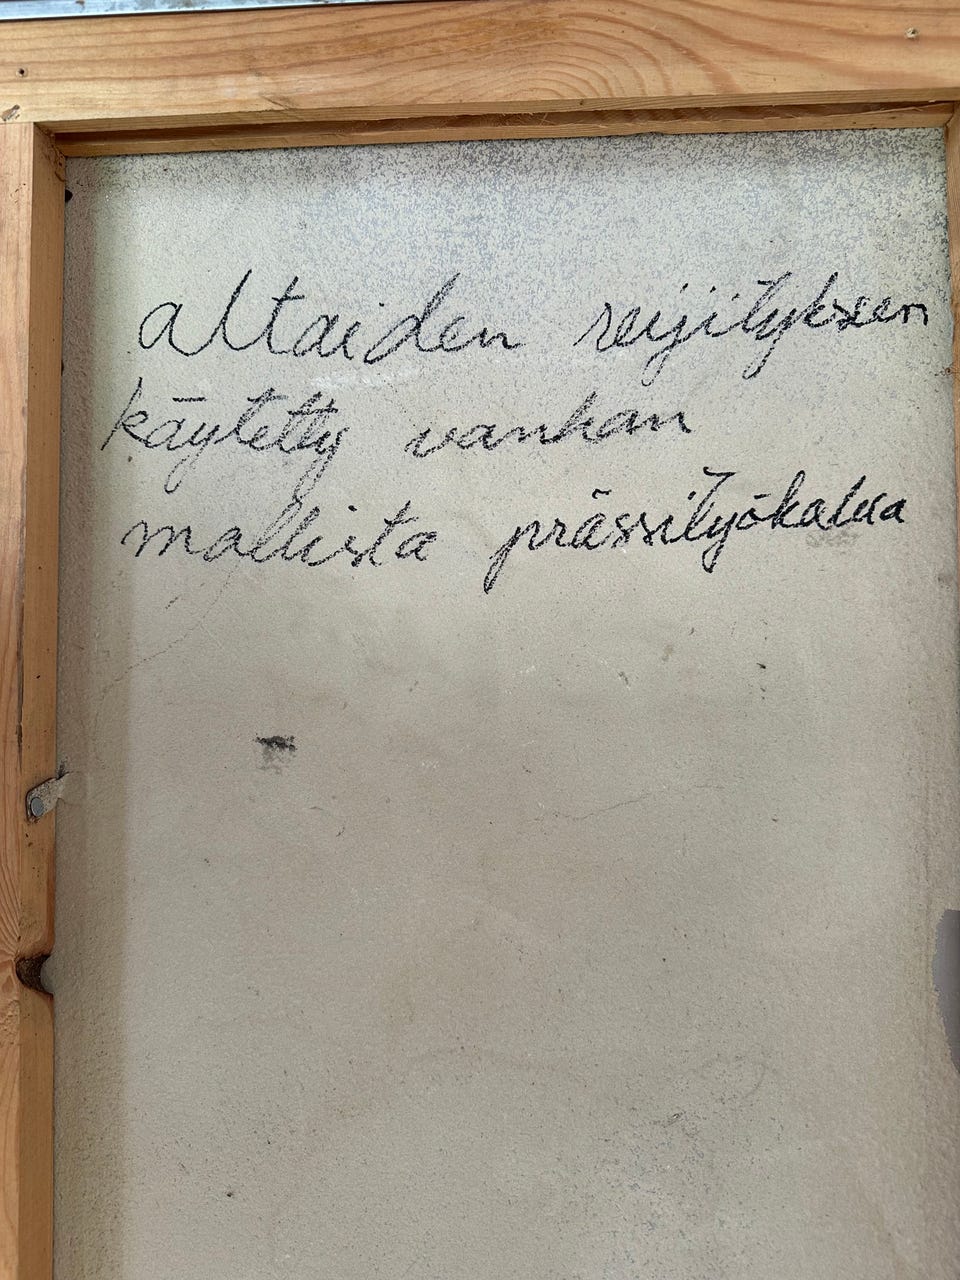 altaiden reijityksen
käytetty vanhan
mallista prässityökalua